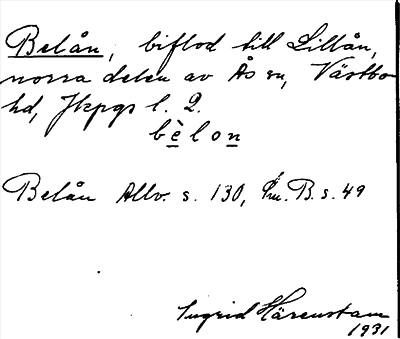 Belån, biflod till Lillån,
norra delen av Ås sn, Västbo
hd, Jkpgs l. 2.
bèlon
Belån Allv. s. 130, B. s. 49
Ingrid Härenstam
1931